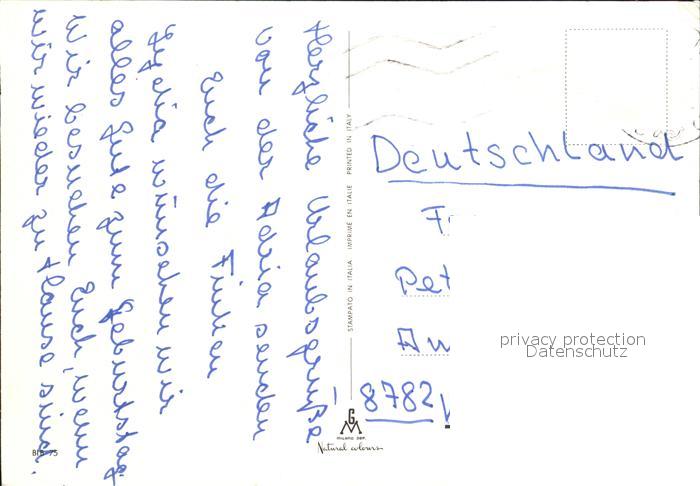 Herzliche Urlaubsgrüße
von der Adria senden
Euch die Finken
Lydia wünschen wir
alles Gute zum Geburtstag.
Wir besuchen Euch, wenn
wir wieder zu Hause sind.
STAMPATO IN ITALIA IMPRIMÉ EN ITALIE PRINTED IN ITALY
Deutschland
Pet
An
8782
privacy protection
Datenschutz
GM
MILANO DEP.
Natural colours
75